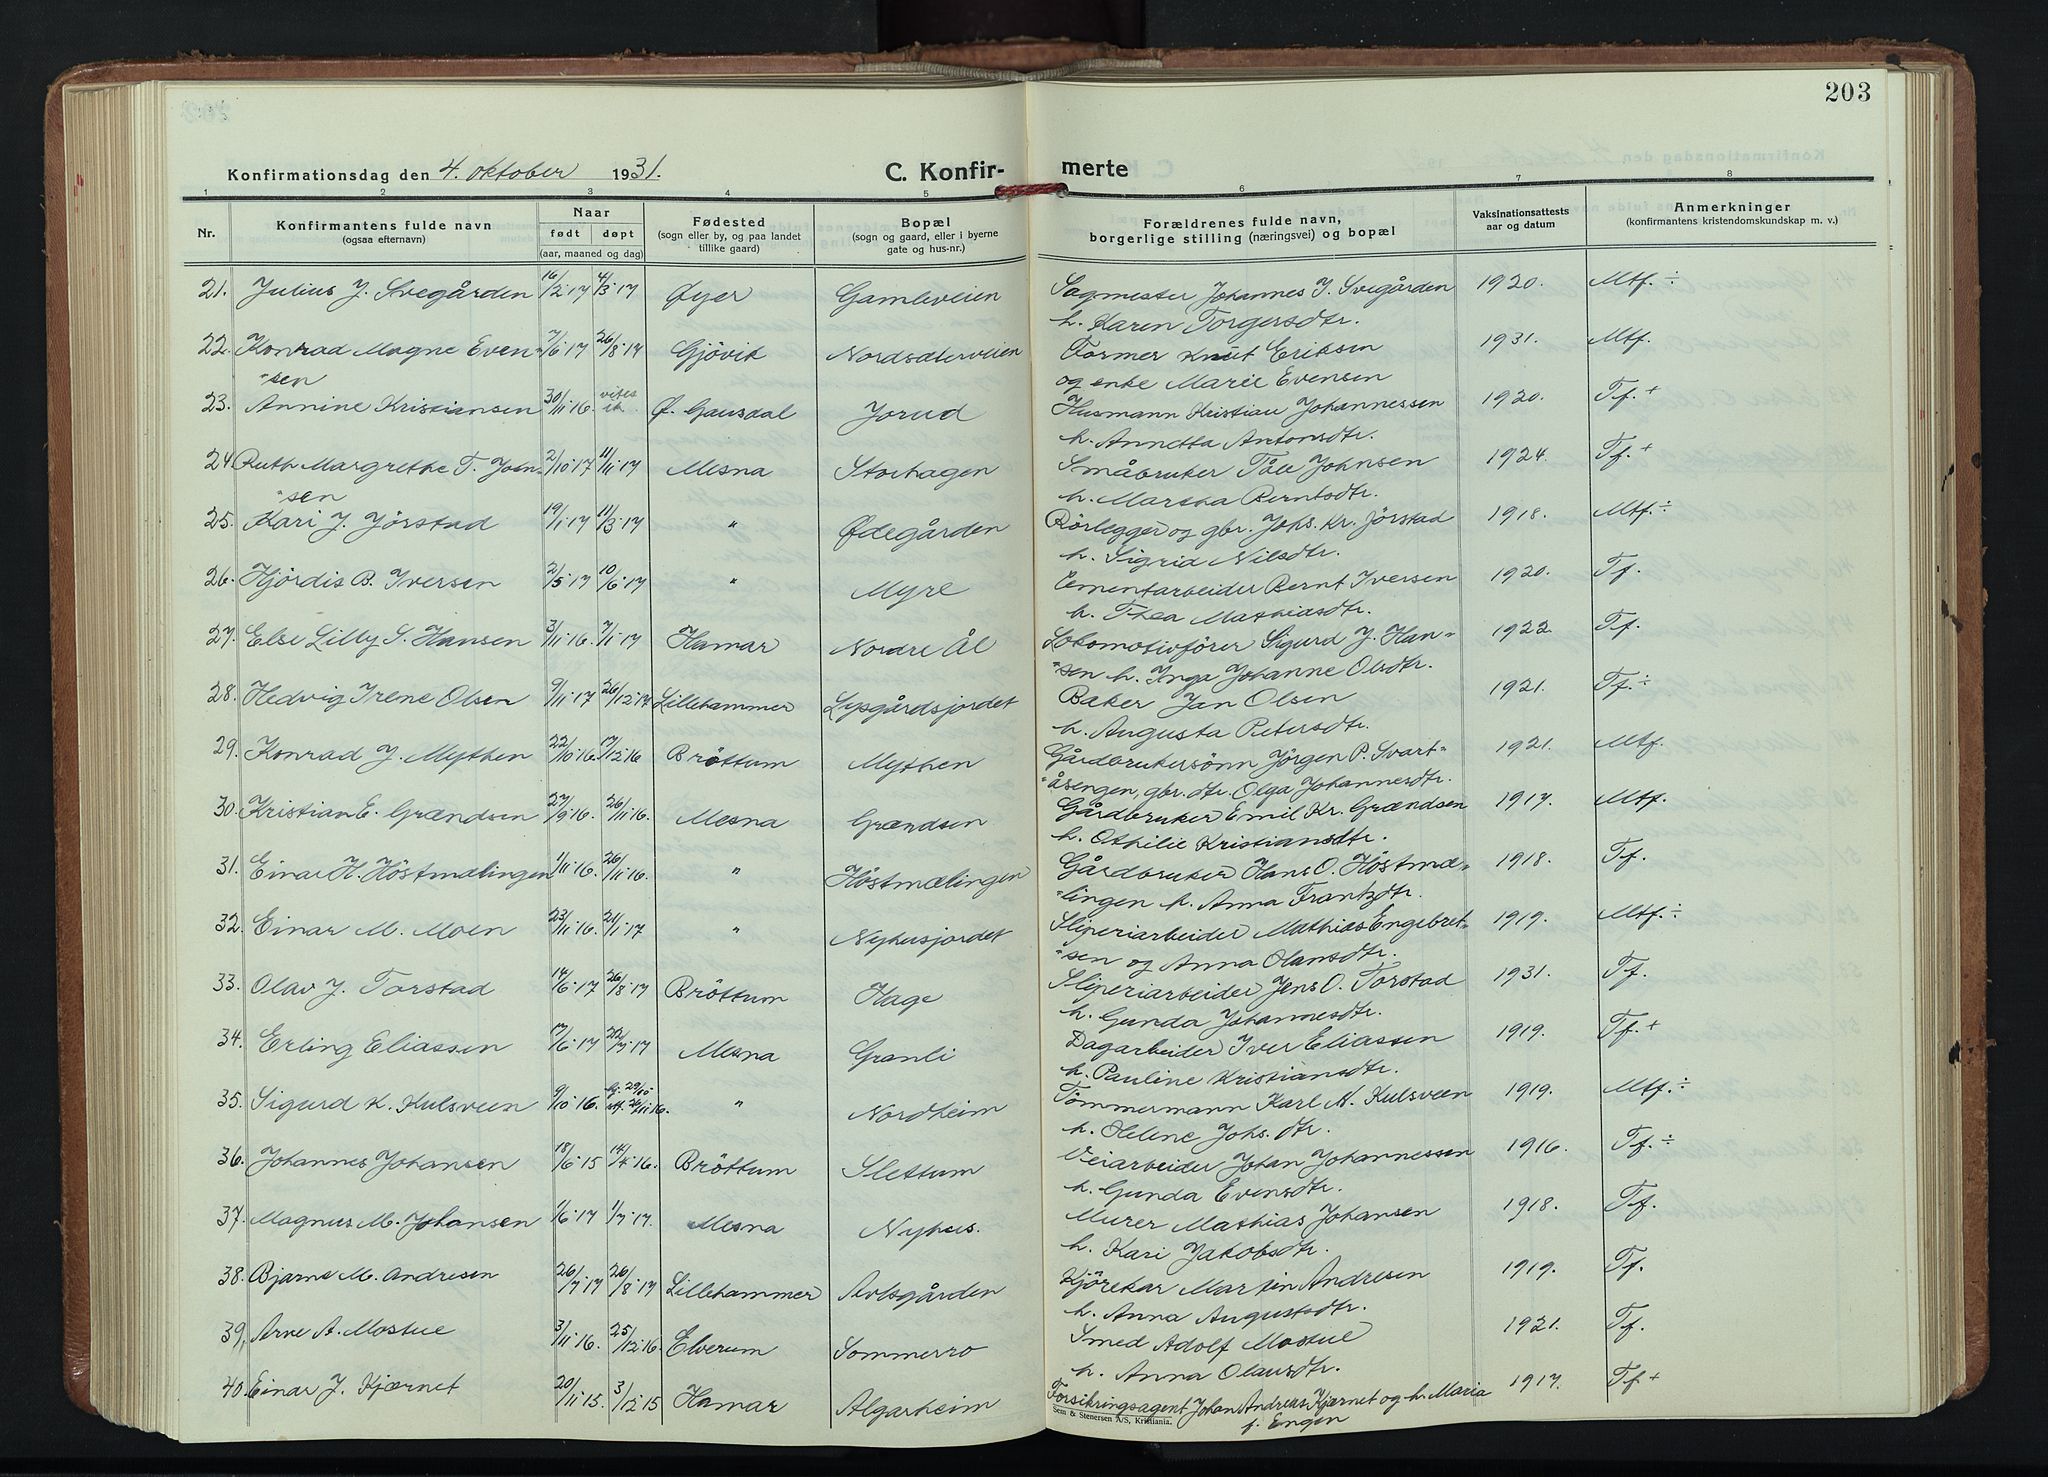 203
Konfirmationsdag den 4. oktober 1931. C. Konfir- merte
1 2 3 4 5 6 7 8
Nr. Konfirmantens fulde navn (ogsaa efternavn) Naar født døpt (aar, maaned og dag) Fødested (sogn eller by, og paa landet tillike gaard) Bopæl (sogn og gaard, eller i byerne gate og hus-nr.) Forældrenes fulde navn, borgerlige stilling (næringsvei) og bopæl Vaksinationsattests aar og datum Anmerkninger (konfirmantens kristendomskundskap m. v.)
21. Julius J. Svegården 16/2·17 4/3·17 Øyer Gamleveien Sagmester Johannes J. Svegården 1920. Mtf. ÷
h. Karen Torgersdtr.
22. Konrad Magne Even- 7/6·17 26/8·17 Gjövik Nordsæterveien Former Knut Eriksen 1931. Mtf.
"sen og enke Marie Evensen
23. Annine Kristiansen 30/11·16. Ø. Gausdal Jorud Husmann Kristian Johannessen 1920. Tf. +
h. Annetta Antonsdtr.
24. Ruth Margrethe T. John- 2/10·17 11/11·17 Mesna Storhagen Småbruker Tåle Johnsen 1924. Tf. +
"sen h. Martha Berntsdtr.
25. Kari J. Jörstad 19/1·17 11/3·17 " Ødegården Rörlegger og gbr. Johs. Kr. Jörstad 1918. Mtf. ÷
h. Sigrid Nilsdtr.
26. Hjördis B. Iversen 2/5·17 10/6·17 " Myre Cementarbeider Bernt Iversen 1920. Tf.
h. Thea Mathiasdtr.
27. Else Lilly S. Hansen 3/11·16. 7/1·17 Hamar Nordre Ål Lokomotivförer Sigurd J. Han- 1922 Tf.
"sen h. Inga Johanne Olsdtr.
28. Hedvig Irene Olsen 9/11·17 26/12·17 Lillehammer Lysgårdsjordet Baker Jan Olsen 1921. Tf. ÷
h. Augusta Petersdtr.
29. Konrad J. Mythen 22/10·16. 17/12·16 Bröttum Mythen Gårdbrukersönn Jörgen P. Svart- 1921. Mtf.
"åsengen, gbr. dtr. Olga Johannesdtr.
30. Kristian E. Grændsen 27/9·16. 26/11·16. Mesna Grændsen Gårdbruker Emil Kr. Grændsen 1917. Mtf.
h. Othilie Kristiansdtr.
31. Einar H. Höstmælingen 1/11·16. 26/11·16. " Höstmælingen Gårdbruker Hans O. Höstmæ- 1918. Tf.
"lingen h. Anna Frantzdtr.
32. Einar M. Moen 23/11·16. 21/1·17 " Nyhusjordet Sliperiarbeider Mathias Engebret- 1919. Mtf. ÷
"sen og Anna Hansdtr.
33. Olav J. Torstad 14/6·17 26/8·17 Bröttum Hage Sliperiarbeider Jens O. Torstad 1931. Tf.
h. Gunda Johannesdtr.
34. Erling Eliassen 17/6·17 22/7·17 Mesna Granli Dagarbeider Iver Eliassen 1919. Tf. +
h. Pauline Kristiansdtr.
35. Sigurd K. Kulsveen 9/10·16. hj. 29/10 stf. 26/11·16. " Nordheim Tömmermann Karl M. Kulsveen 1919. Mtf. ÷
h. Helene Johs. dtr.
36. Johannes Johansen 18/6·15 14/4·16. Bröttum Slettum Veiarbeider Johan Johannessen 1916. Tf. ÷
h. Gunda Evensdtr.
37. Magnus M. Johansen 1/6·17 1/7·17. Mesna Nyhus. Murer Mathias Johansen 1918. Tf.
h. Kari Jakobsdtr.
38. Bjarne M. Andresen 26/7·17 26/8·17 Lillehammer Avlsgården Kjörekar Martin Andresen 1919. Tf.
h. Anna Augustsdtr.
39. Arne A. Mostue 3/11·16. 25/12·16. Elverum Sommerro Smed Adolf Mostue 1921. Tf.
h. Anna Olausdtr.
40. Einar J. Kjærnet 20/11·15. 3/12·15 Hamar Algarheim Forsikringsagent Johan Andreas Kjærnet og h. Maria 1917. Tf +
Sem & Stenersen A/S, Kristiania. f. Engen